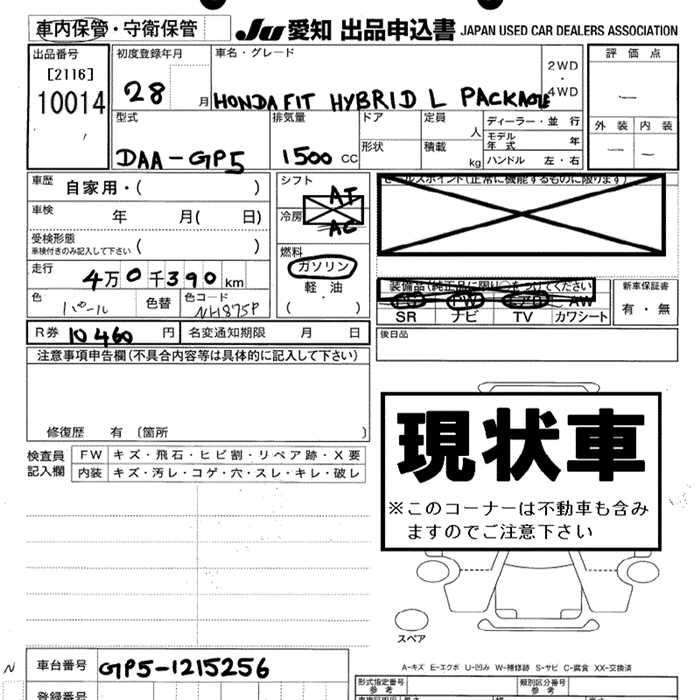 車内保管・守衛保管
Ju 愛知 出品申込書 JAPAN USED CAR DEALERS ASSOCIATION
出品番号
[2116]
10014
初度登録年月
28 月
車名・グレード
HONDA FIT HYBRID L PACKAGE
2WD
・
4WD
評価点
外装 内装
型式
DAA-GP5
排気量
1500 CC
ドア
形状
定員
人
積載
kg
ディーラー・並行
モデル年式 年
ハンドル 左・右
車歴 自家用・( )
車検 年 月( 日)
受検形態
車検付きのみ記入して下さい ( )
走行 4万0千390km
色 パール 色替 色コード NH875P
R券 10460 円 名変通知期限 月 日
シフト AT
冷房 AC
燃料
ガソリン
軽油
( )
セールスポイント(正常に機能するものに限ります)
装備品(純正品に限り○をつけてください
AW
SR ナビ TV カワシート
新車保証書
有・無
後日品
注意事項申告欄(不具合内容等は具体的に記入して下さい)
修復歴 有 〔箇所 〕
検査員記入欄
FW キズ・飛石・ヒビ割・リペア跡・X要
内装 キズ・汚レ・コゲ・穴・スレ・キレ・破レ
現状車
※このコーナーは不動車も含み
ますのでご注意下さい
スペア
A-キズ E-エクボ U-凹み W-補修跡 S-サビ C-腐食 XX-交換済
N 車台番号 GP5-1215256
登録番号
形式指定番号
参考
類別区分番号
参考